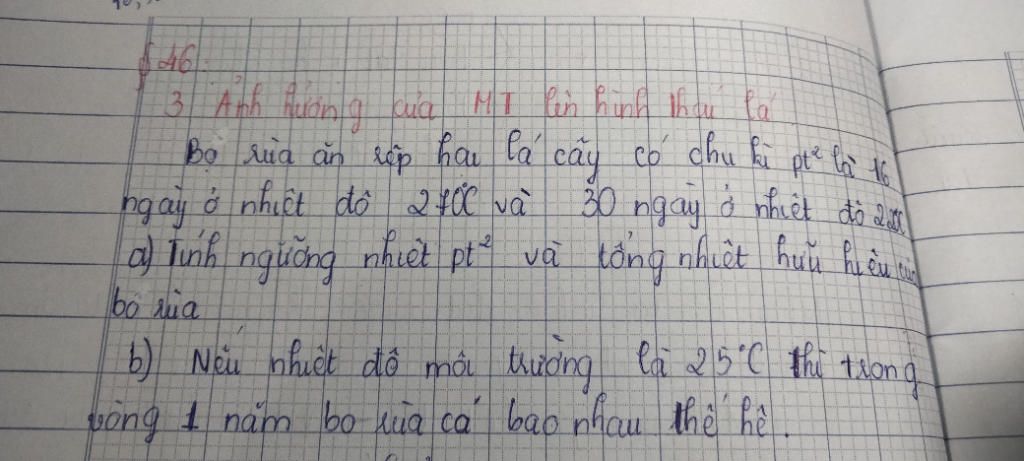 § 46:
3 Ảnh hưởng của MT lên hình thái lá
Bọ rùa ăn rệp hại lá cây có chu kì pt² là 16
ngày ở nhiệt độ 27°C và 30 ngày ở nhiệt độ
a) Tính ngưỡng nhiệt pt² và tổng nhiệt hữu hiệu của
bọ rùa
b) Nếu nhiệt độ môi trường là 25°C thì trong
vòng 1 năm bọ rùa có bao nhau thế hệ.